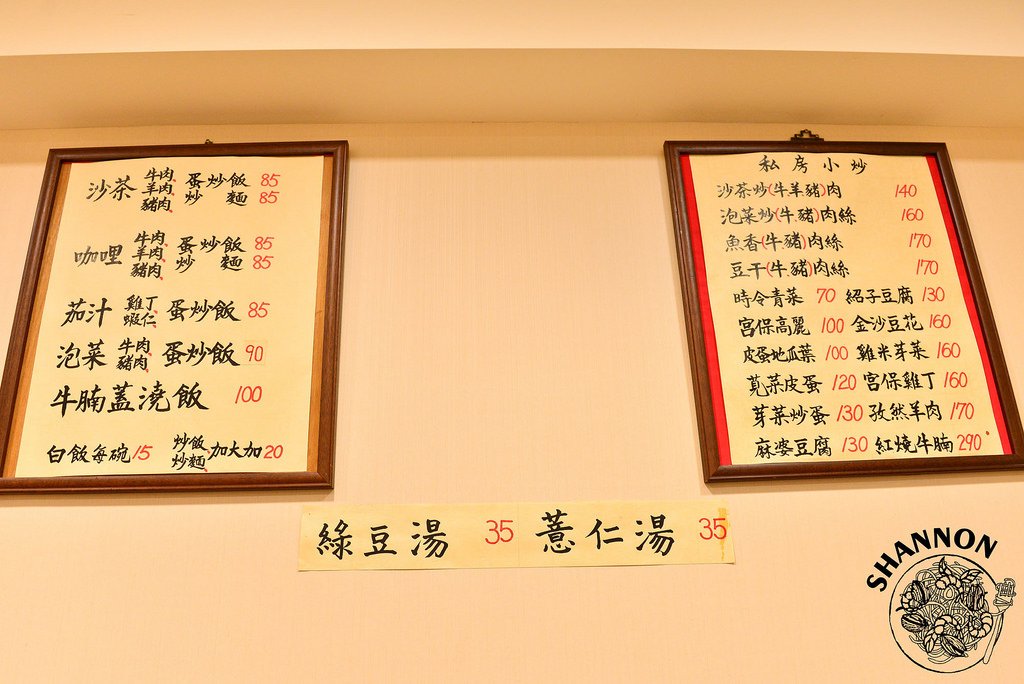 沙茶 牛肉 羊肉 豬肉 蛋炒飯 85 炒麵 85
咖哩 牛肉 羊肉 豬肉 蛋炒飯 85 炒麵 85
茄汁 雞丁 蝦仁 蛋炒飯 85
泡菜 牛肉 豬肉 蛋炒飯 90
牛腩蓋澆飯 100
白飯每碗15 炒飯 炒麵 加大加20
私房小炒
沙茶炒(牛羊豬)肉 140
泡菜炒(牛.豬)肉絲 160
魚香(牛豬)肉絲 170
豆干(牛.豬)肉絲 170
時令青菜 70 紹子豆腐 130
宮保高麗 100 金沙豆花 160
皮蛋地瓜葉 100 雞米芽菜 160
莧菜皮蛋 120 宮保雞丁 160
芽菜炒蛋 130 孜然羊肉 170
麻婆豆腐 130 紅燒牛腩 290
綠豆湯 35 薏仁湯 35
SHANNON